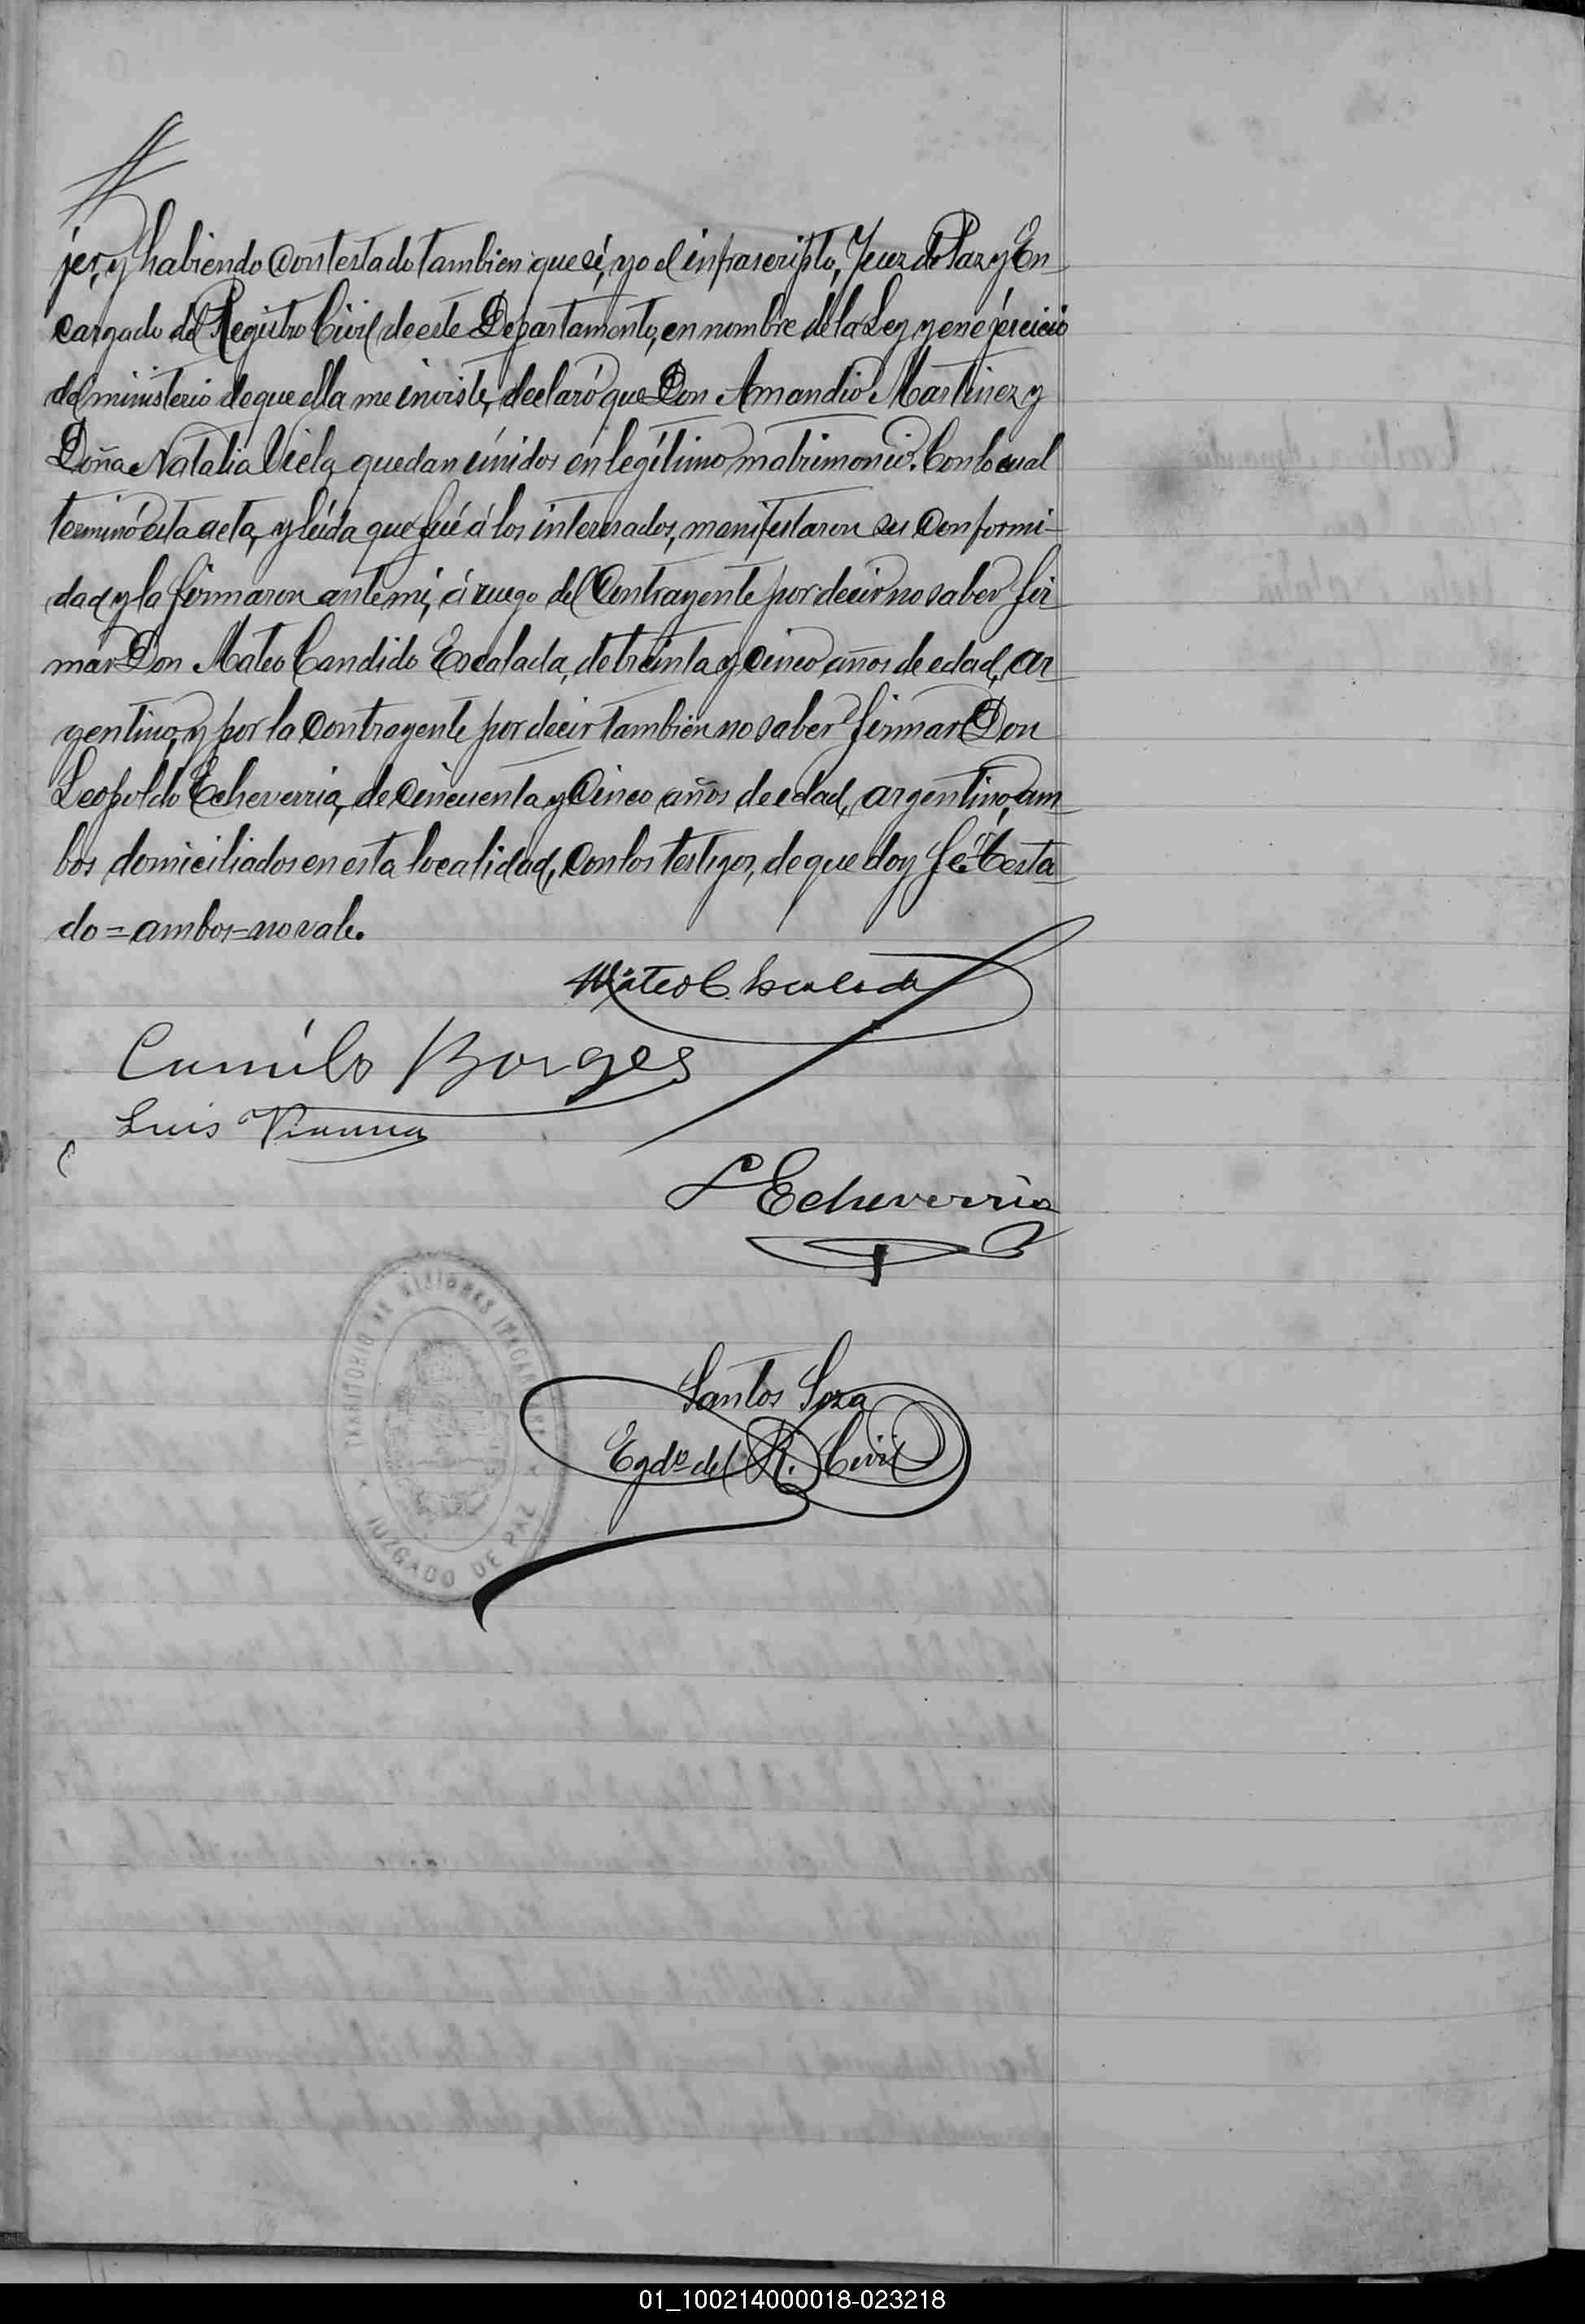 jer, y habiendo Contestado tambien que sí, yo el infrascripto, Juez de Paz y En-
cargado del Registro Civil de este Departamento, en nombre de la Ley y en ejercicio
del ministerio de que ella me inviste, declaró que Don Amandio Martinez y
Doña Natalia Viela, quedan únidos en legítimo matrimonio. Con lo cual
terminó esta acta, y leída que fué á los interesados, manifestaron su Conformi-
dad y la firmaron ante mi, á ruego del Contrayente por decir no saber fir-
mar Don Mateo Candido Escalada, de treinta y Cinco años de edad, ar-
gentino, y por la Contrayente por decir tambien no saber firmar Don
Leopoldo Echeverria, de Cincuenta y Cinco años de edad, argentino, am-
bos domiciliados en esta localidad, Con los testigos, de que doy fé. Testa-
do = ambos = no vale.
Mateo C. Escalada
Camilo Borges
Luis Vianna
L Echeverria
TERRITORIO DE MISIONES
JUZGADO DE PAZ
Santos Soza
Egdo del R. Civil
01_100214000018-023218